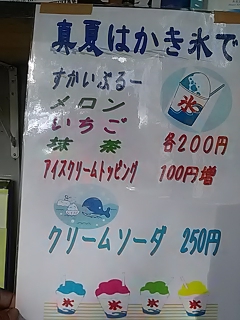 真夏はかき氷で
すかいぶるー
メロン
いちご
抹茶
氷
各200円
アイスクリームトッピング 100円増
クリームソーダ 250円
氷 氷 氷 氷